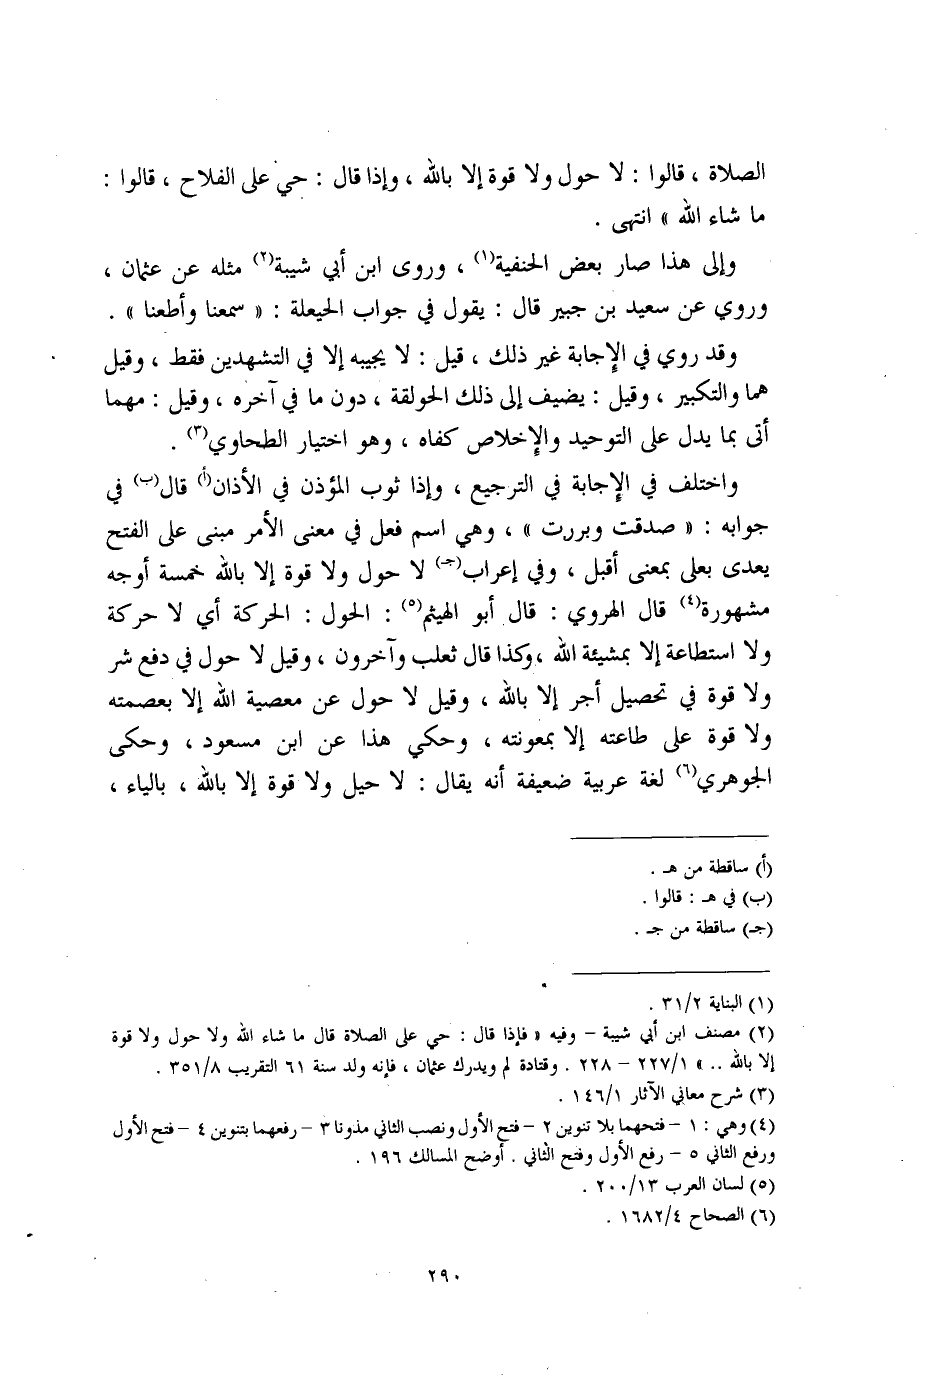 الصلاة ، قالوا : لا حول ولا قوة إلا بالله ، وإذا قال : حي على الفلاح ، قالوا :
ما شاء الله » انتهى .
وإلى هذا صار بعض الحنفية(١) ، وروى ابن أبي شيبة(٢) مثله عن عثمان ،
وروي عن سعيد بن جبير قال : يقول في جواب الحيعلة : « سمعنا وأطعنا » .
وقد روي في الإجابة غير ذلك ، قيل : لا يجيبه إلا في التشهدين فقط ، وقيل
هما والتكبير ، وقيل : يضيف إلى ذلك الحولقة ، دون ما في آخره ، وقيل : مهما
أتى بما يدل على التوحيد والإخلاص كفاه ، وهو اختيار الطحاوي(٣) .
واختلف في الإجابة في الترجيع ، وإذا ثوب المؤذن في الأذان(أ) قال(ب) في
جوابه : « صدقت وبررت » ، وهي اسم فعل في معنى الأمر مبنى على الفتح
يعدى بعلى بمعنى أقبل ، وفي إعراب(جـ) لا حول ولا قوة إلا بالله خمسة أوجه
مشهورة(٤) قال الهروي : قال أبو الهيثم(٥) : الحول : الحركة أي لا حركة
ولا استطاعة إلا بمشيئة الله ،وكذا قال ثعلب وآخرون ، وقيل لا حول في دفع شر
ولا قوة في تحصيل أجر إلا بالله ، وقيل لا حول عن معصية الله إلا بعصمته
ولا قوة على طاعته إلا بمعونته ، وحكي هذا عن ابن مسعود ، وحكى
الجوهري(٦) لغة عربية ضعيفة أنه يقال : لا حيل ولا قوة إلا بالله ، بالياء ،
(أ) ساقطة من هـ .
(ب) في هـ : قالوا .
(جـ) ساقطة من جـ .
(١) البناية ٣١/٢ .
(٢) مصنف ابن أبي شيبة – وفيه « فإذا قال : حي على الصلاة قال ما شاء الله ولا حول ولا قوة
إلا بالله .. » ٢٢٧/١ – ٢٢٨ . وقتادة لم ويدرك عثمان ، فإنه ولد سنة ٦١ التقريب ٣٥١/٨ .
(٣) شرح معاني الآثار ١٤٦/١ .
(٤) وهي : ١ – فتحهما بلا تنوين ٢ – فتح الأول ونصب الثاني مذونا ٣ – رفعهما بتنوين ٤ – فتح الأول
ورفع الثاني ٥ – رفع الأول وفتح الثاني . أوضح المسالك ١٩٦ .
(٥) لسان العرب ٢٠٠/١٣ .
(٦) الصحاح ١٦٨٢/٤ .
٢٩٠